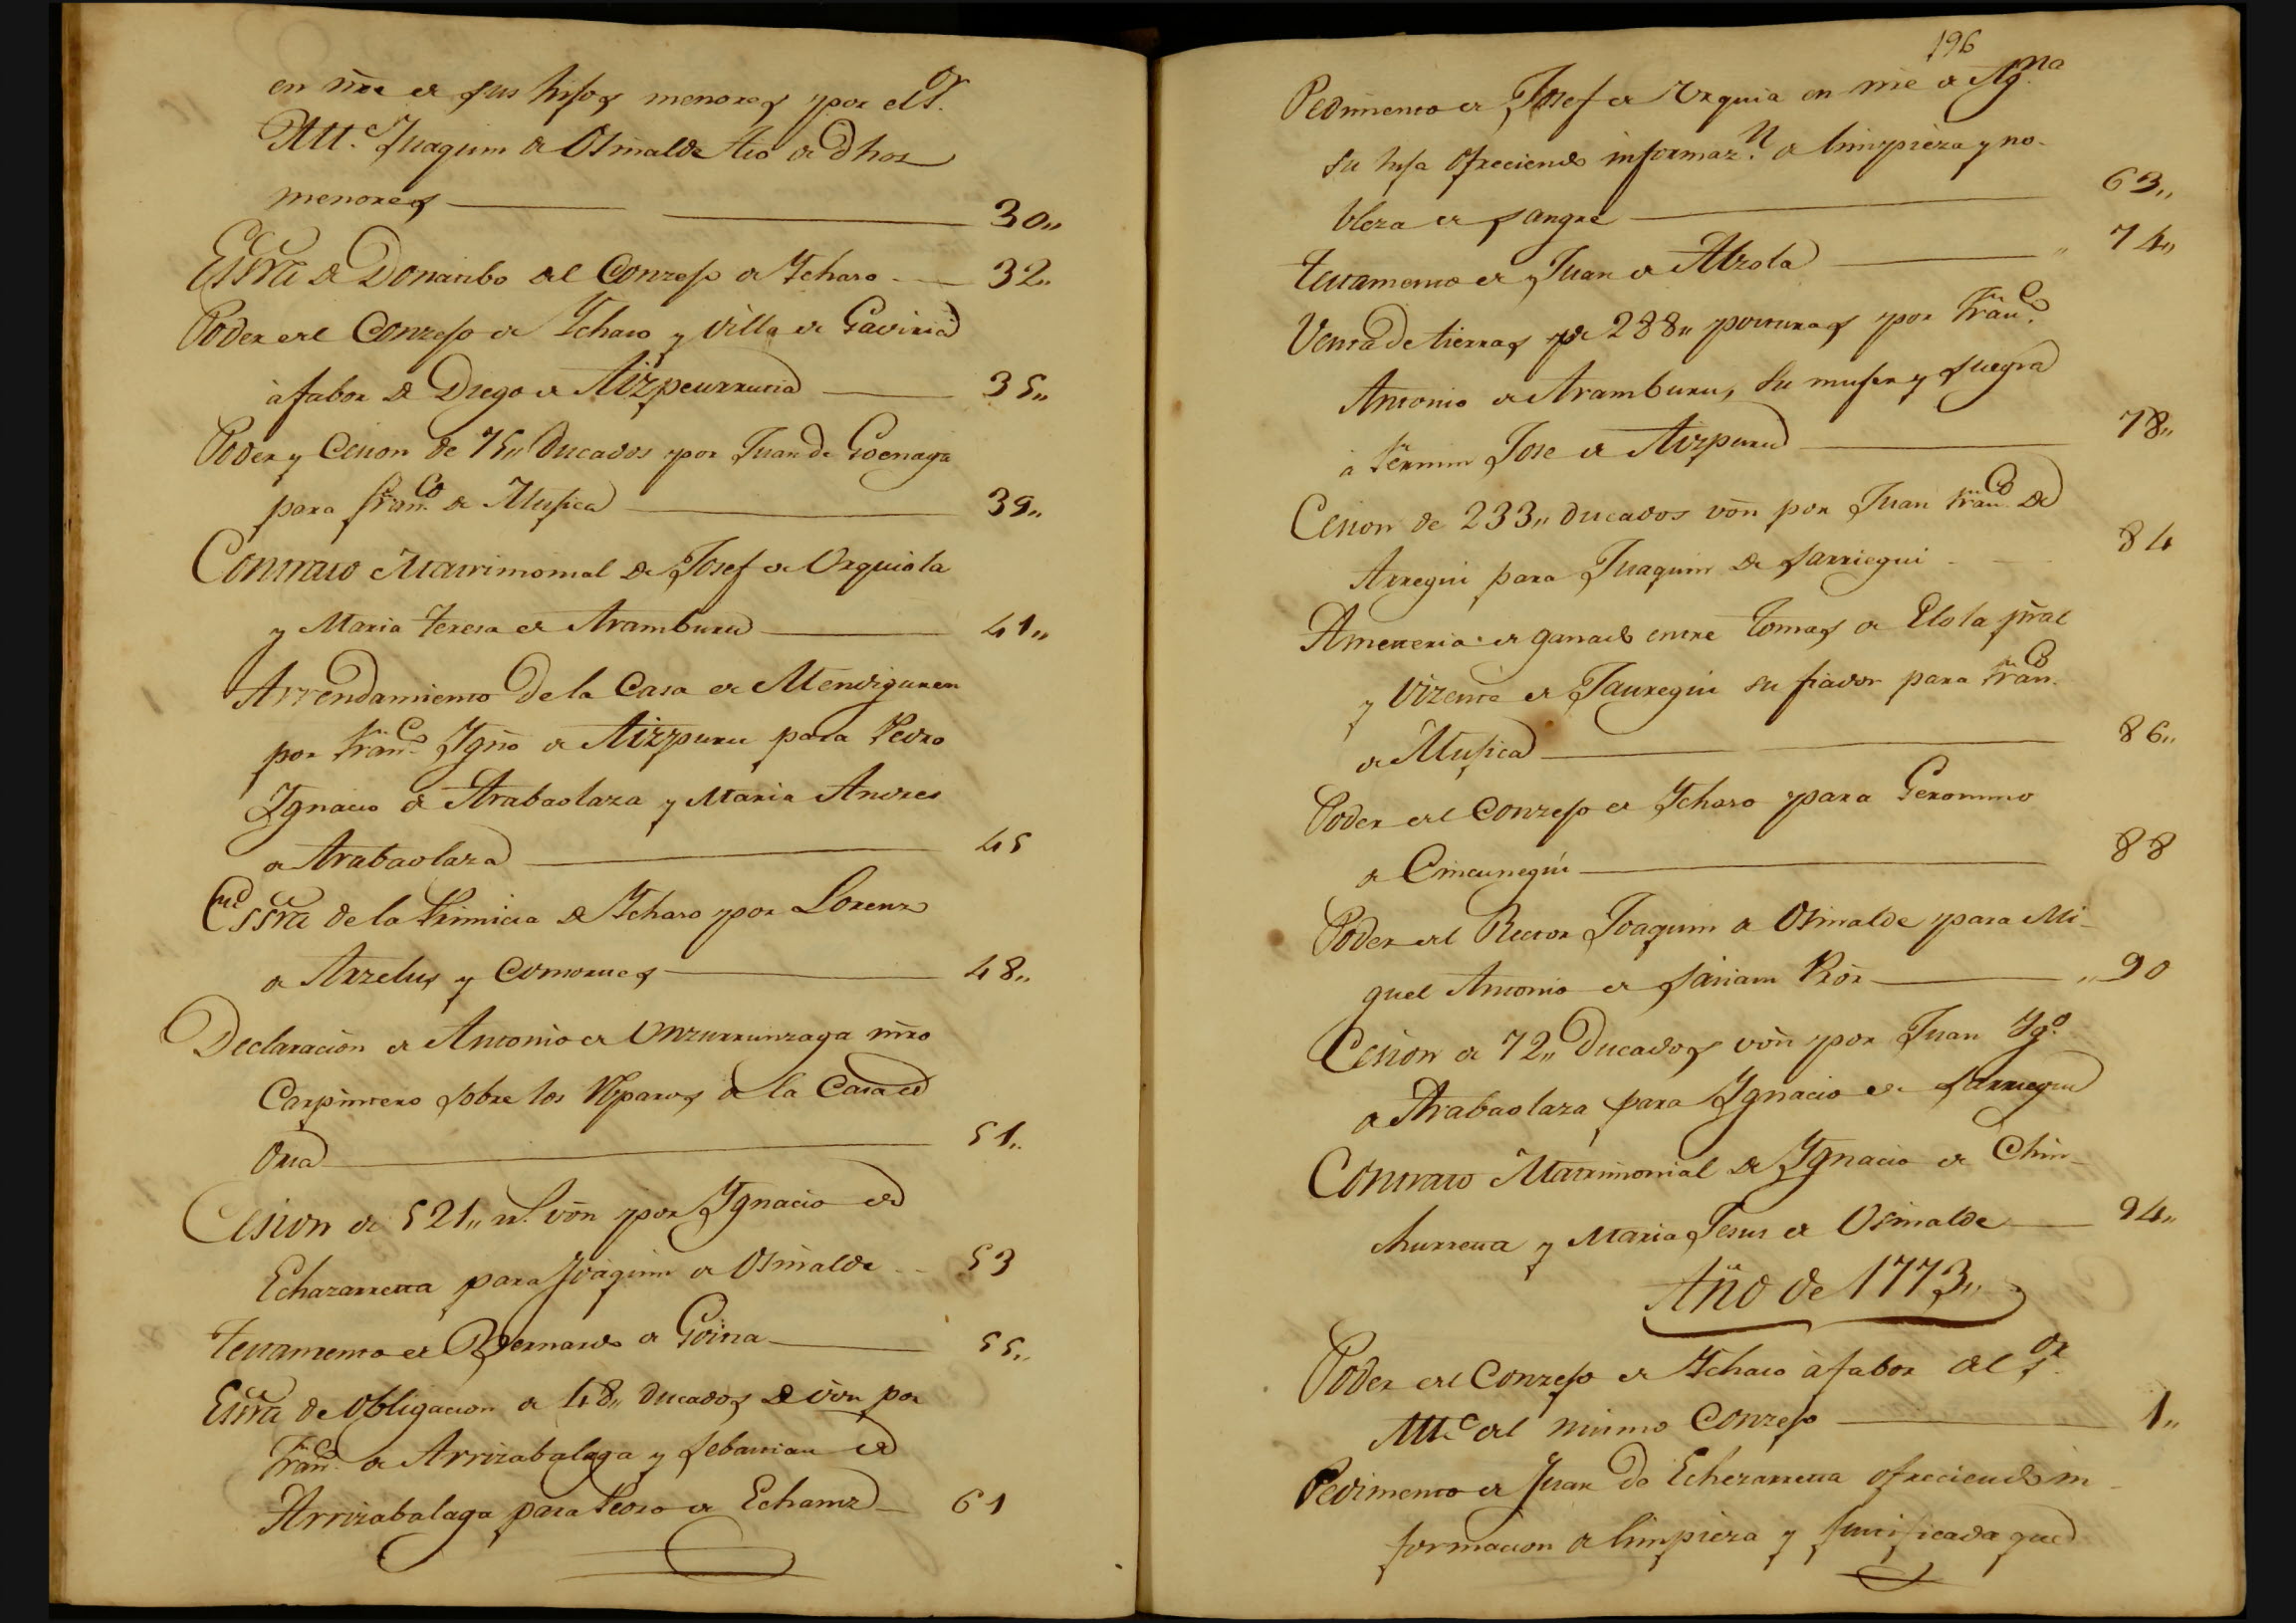 en nre de sus hijos menores y por el Sr.
Alle. Juaquim de Osinalde tio de dhos
menores 30,,
Essra de Donatibo del Conzejo de Ychaso 32,,
Poder del Conzejo de Ychaso y Villa de Gaviria
à fabor de Diego de Aizpeurrutia 35,,
Poder y Cesion de 75,, Ducados por Juan de Goenaga
para Franco. de Mujica 39,,
Contrato Matrimonial de Josef de Urquiola
y Maria Teresa de Aramburu 41,,
Arrendamiento de la Casa de Mendiguren
por Franco. Ygno de Aizpuru para Pedro
Ygnacio de Arabaolaza y Maria Andres
de Arabaolaza 45
Essra de la Primicia de Ychaso por Lorenzo
de Arzelus y Consortes 48,,
Declaracion de Antonio de Unzurrunzaga mro
Carpintero sobre los Reparos de la Casa de
Oria 51,,
Cesion de 521,, rs. von por Ygnacio de
Echazarreta para Joaquim de Osinalde 53
Testamento de Bernardo de Goiria 55,,
Essra de Obligacion de 48,, Ducados de von por
Franco. de Arrizabalaga y Sebastian de
Arrizabalaga para Pedro de Echaniz 61
196
Pedimento de Josef de Urquia en nre de Agna.
su hija ofreciendo informazn. de limpieza y no-
bleza de sangre 63,,
Testamento de Juan de Alzola ,, 74,,
Venta de tierras de 288,, posturas por Franco.
Antonio de Aramburu, su mujer y suegra
à Fermin Jose de Aizpuru 78,,
Cesion de 233,, ducados von por Juan Franco. de
Arregui para Juaquim de Sarriegui 84
Ameteria de ganado entre Tomas de Elola pral
y Vizente de Jauregui su fiador para Franco.
de Mujica 86,,
Poder del Conzejo de Ychaso para Geronimo
de Cincunegui 88
Poder del Rector Joaquim de Osinalde para Mi-
guel Antonio de Pror ,, 90
Cesion de 72,, Ducados von por Juan Ygo.
de Arabaolaza para Ygnacio de Sarriegui
Contrato Matrimonial de Ygnacio de Chin-
churreta y Maria Jesus de Osinalde 94,,
Año de 1773,,
Poder del Conzejo de Ychaso à fabor del Sor.
Alle. del mismo Conzejo 1,,
Pedimento de Juan de Echezarreta ofreciendo in-
formacion de limpieza y justificada que